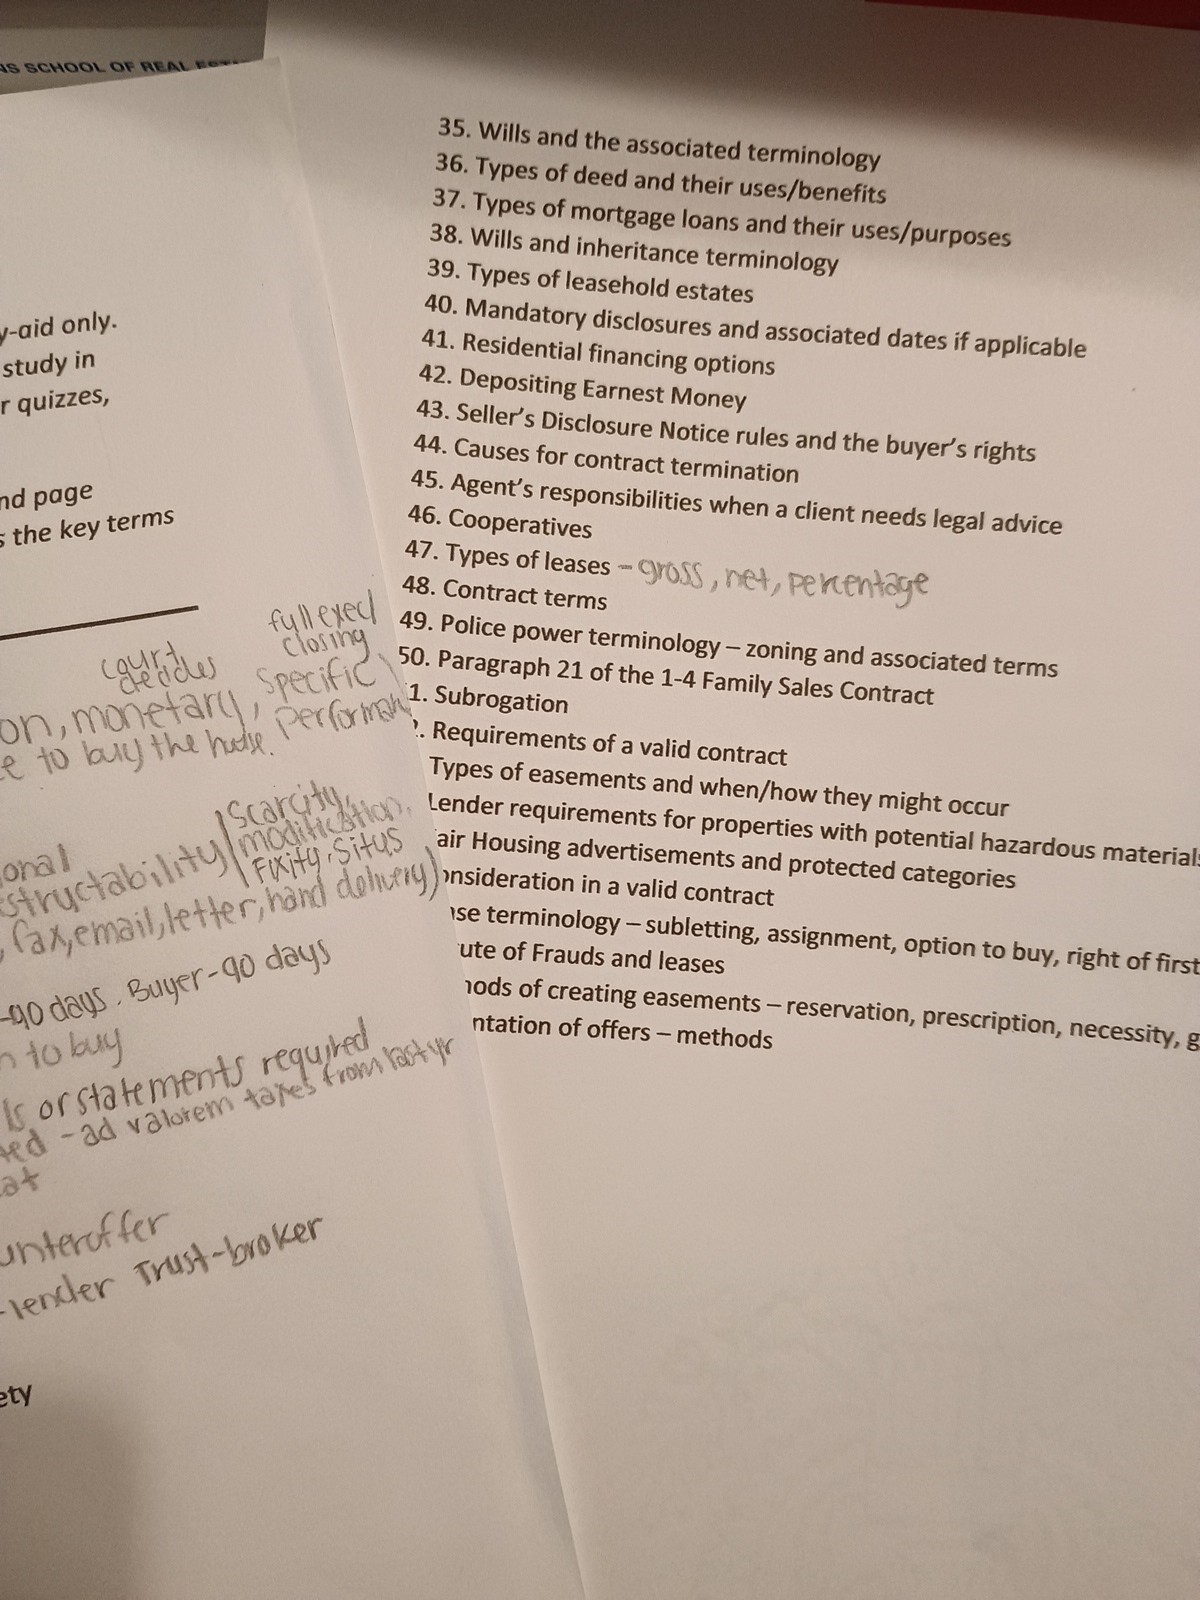 NS SCHOOL OF REAL
y-aid only.
study in
r quizzes,
nd page
s the key terms
full exec/
closing
court
decides
on, monetary, specific
performan
e to buy the house.
Scarcity,
modification,
Fixity, Situs
onal
structability
, fax, email, letter, hand delivery)
-90 days. Buyer-90 days
n to buy
ls or statements required
ted - ad valorem taxes from last yr
at
unteroffer
-lender Trust-broker
ety
35. Wills and the associated terminology
36. Types of deed and their uses/benefits
37. Types of mortgage loans and their uses/purposes
38. Wills and inheritance terminology
39. Types of leasehold estates
40. Mandatory disclosures and associated dates if applicable
41. Residential financing options
42. Depositing Earnest Money
43. Seller's Disclosure Notice rules and the buyer's rights
44. Causes for contract termination
45. Agent's responsibilities when a client needs legal advice
46. Cooperatives
47. Types of leases – gross, net, percentage
48. Contract terms
49. Police power terminology – zoning and associated terms
50. Paragraph 21 of the 1-4 Family Sales Contract
1. Subrogation
. Requirements of a valid contract
Types of easements and when/how they might occur
Lender requirements for properties with potential hazardous materials
air Housing advertisements and protected categories
onsideration in a valid contract
ase terminology – subletting, assignment, option to buy, right of first
ute of Frauds and leases
hods of creating easements – reservation, prescription, necessity, g
ntation of offers – methods